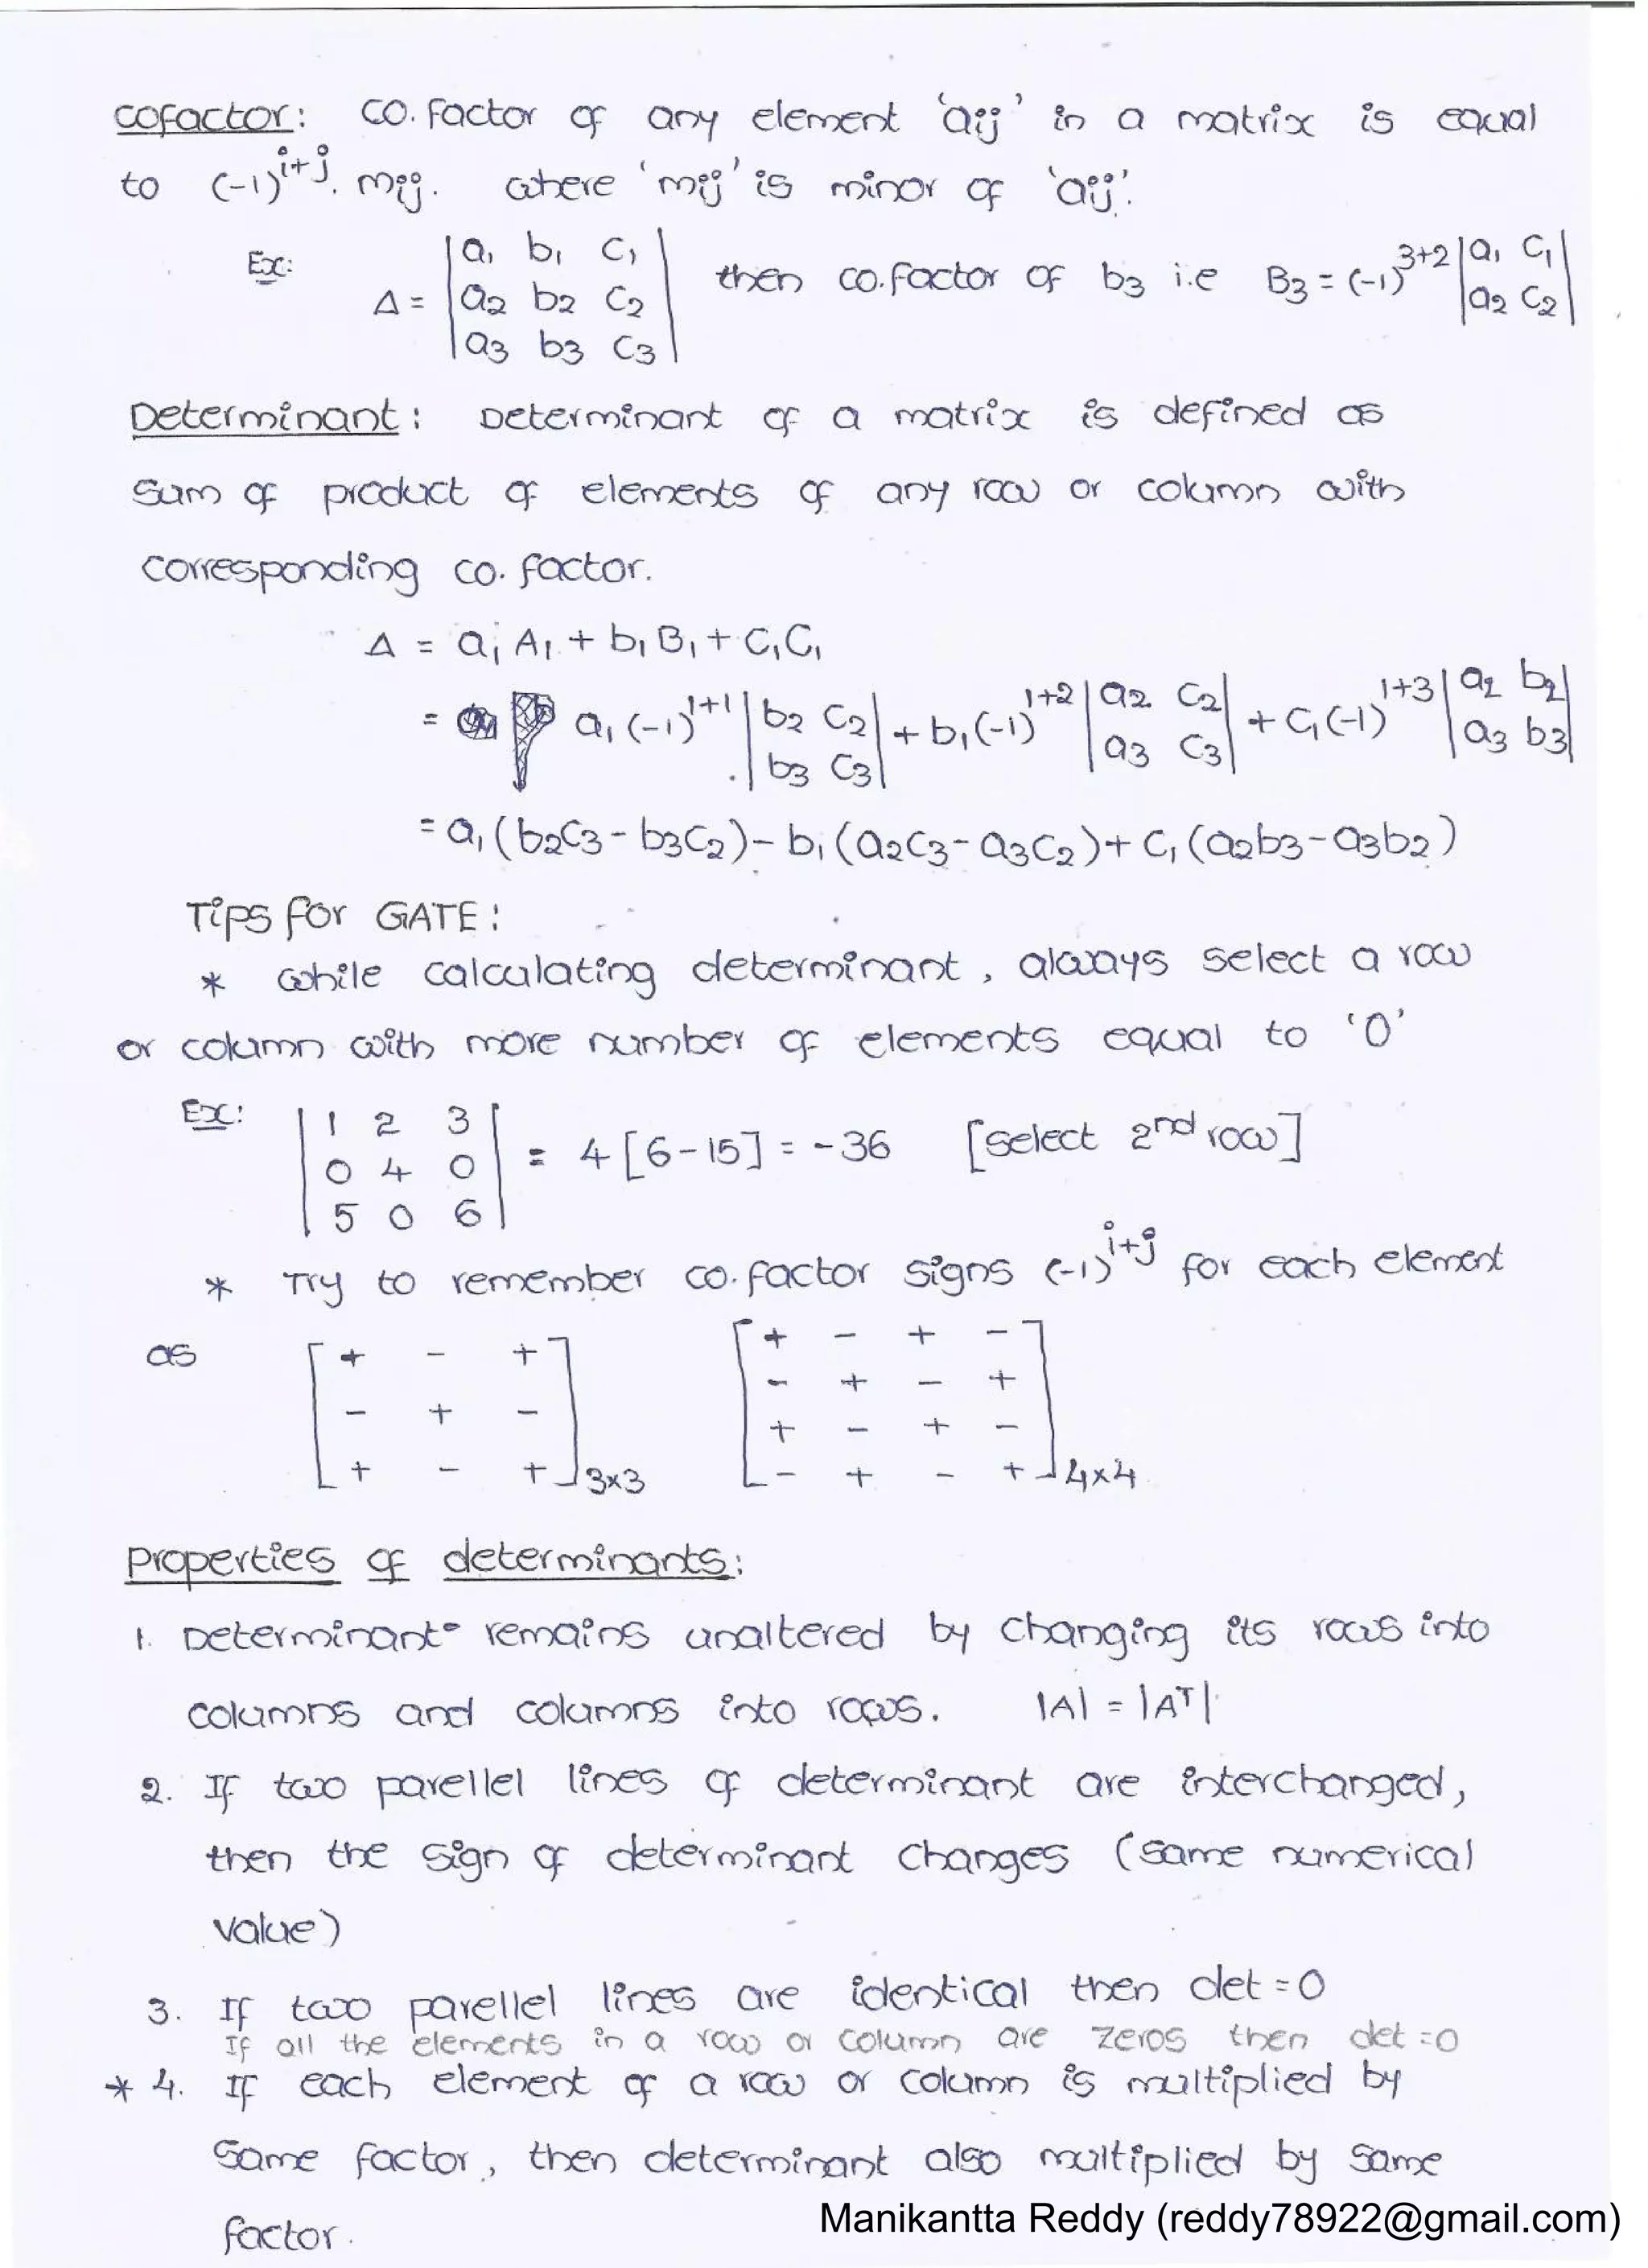 cofactor: co.factor of any element 'aij' in a matrix is equal
to (-1)^{i+j}. mij. where 'mij' is minor of 'aij'.
Ex: Δ = |a1 b1 c1| then co.factor of b3 i.e B3 = (-1)^{3+2} |a1 c1|
|a2 b2 c2| |a2 c2|
|a3 b3 c3|
Determinant: Determinant of a matrix is defined as
sum of product of elements of any row or column with
corresponding co.factor.
Δ = a1 A1 + b1 B1 + C1C1
= a1 (-1)^{1+1} |b2 c2| + b1 (-1)^{1+2} |a2 c2| + C1 (-1)^{1+3} |a2 b2|
|b3 c3| |a3 c3| |a3 b3|
= a1 (b2c3 - b3c2) - b1 (a2c3 - a3c2) + C1 (a2b3 - a3b2)
Tips for GATE:
* while calculating determinant, always select a row
or column with more number of elements equal to '0'
Ex: |1 2 3|
|0 4 0| = 4 [6-15] = -36 [select 2nd row]
|5 0 6|
* Try to remember co.factor signs (-1)^{i+j} for each element
as [+ - +] [+ - + -]
[- + -] [- + - +]
[+ - +]3x3 [+ - + -]
[- + - +]4x4
Properties of determinants:
1. Determinant remains unaltered by changing its rows into
columns and columns into rows. |A| = |A^T|
2. If two parellel lines of determinant are interchanged,
then the sign of determinant changes (same numerical
value)
3. If two parellel lines are identical then det = 0
If all the elements in a row or column are zeros then det = 0
* 4. If each element of a row or column is multiplied by
same factor, then determinant also multiplied by same
factor.
Manikantta Reddy (reddy78922@gmail.com)